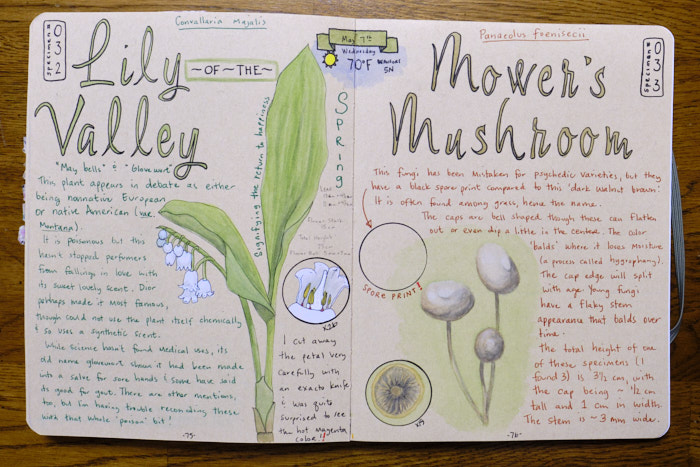 Convallaria Majalis
specimen
032
Lily
~OF~THE~
Valley
"May bells" & "Glovewort"
This plant appears in debate as either
being nonnative European
or native American (var.
Montana).
It is poisonous but this
hasn't stopped perfumers
from falling in love with
its sweet lovely scent. Dior
perhaps made it most famous,
though could not use the plant itself chemically
& so uses a synthetic scent.
While science hasn't found medical uses, its
old name glovewort shows it had been made
into a salve for sore hands & some have said
its good for gout. There are other mentions,
too, but I'm having trouble reconciling these
with that whole "poison" bit!
-75-
Signifying the return to happiness
May 7th
Wednesday
70°F
5N
Spring
Total Height
x26
I cut away
the petal very
carefully with
an exacto knife
& was quite
surprised to see
the hot magenta
color!!
Panaeolus foenisecii
specimen
033
Mower's
Mushroom
This fungi has been mistaken for psychedelic varieties, but they
have a black spore print compared to this 'dark walnut brown'.
It is often found among grass, hence the name.
The caps are bell shaped though these can flatten
out or even dip a little in the center. The color
'balds' where it loses moisture
(a process called hygrophany).
The cap edge will split
with age. Young fungi
have a flaky stem
appearance that balds over
time.
SPORE PRINT!
The total height of one
of these specimens (I
found 3) is 3½ cm, with
the cap being ~ ½ cm
tall and 1 cm in width.
The stem is ~3 mm wide.
x9
-76-